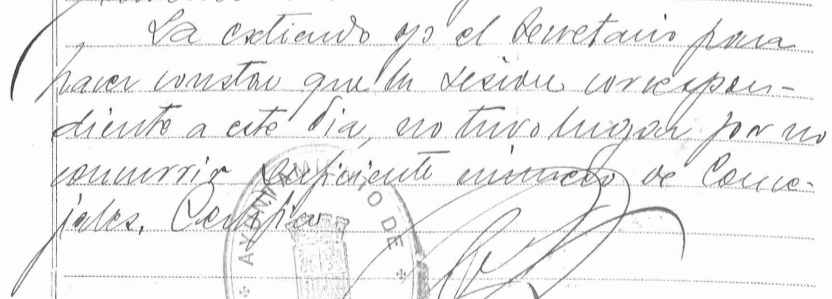 La extiendo yo el Secretario para
hacer constar que la sesión correspon-
diente a este dia, no tuvo lugar por no
concurrir suficiente número de Conce-
jales. Certifico
AYUNTAMIENTO DE